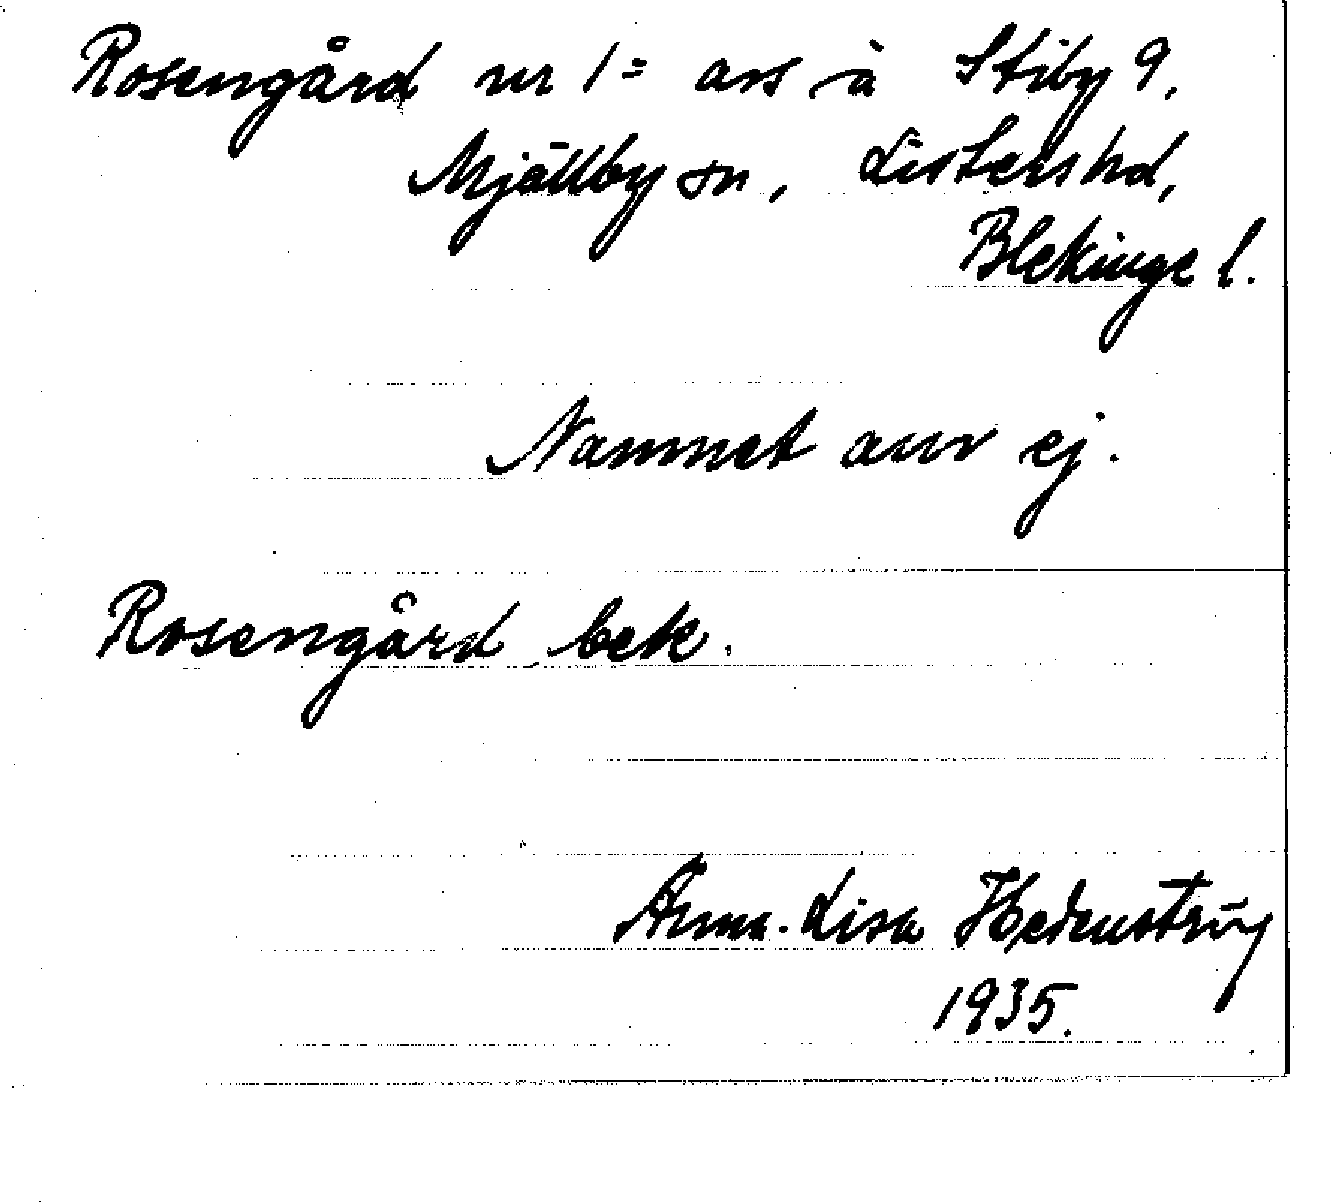 Rosengård nr 1 = avs å Stiby 9,
Mjällby sn, Listers hd,
Blekinge l.
Namnet anv ej.
Rosengård bek.
Anna-Lisa
1935.